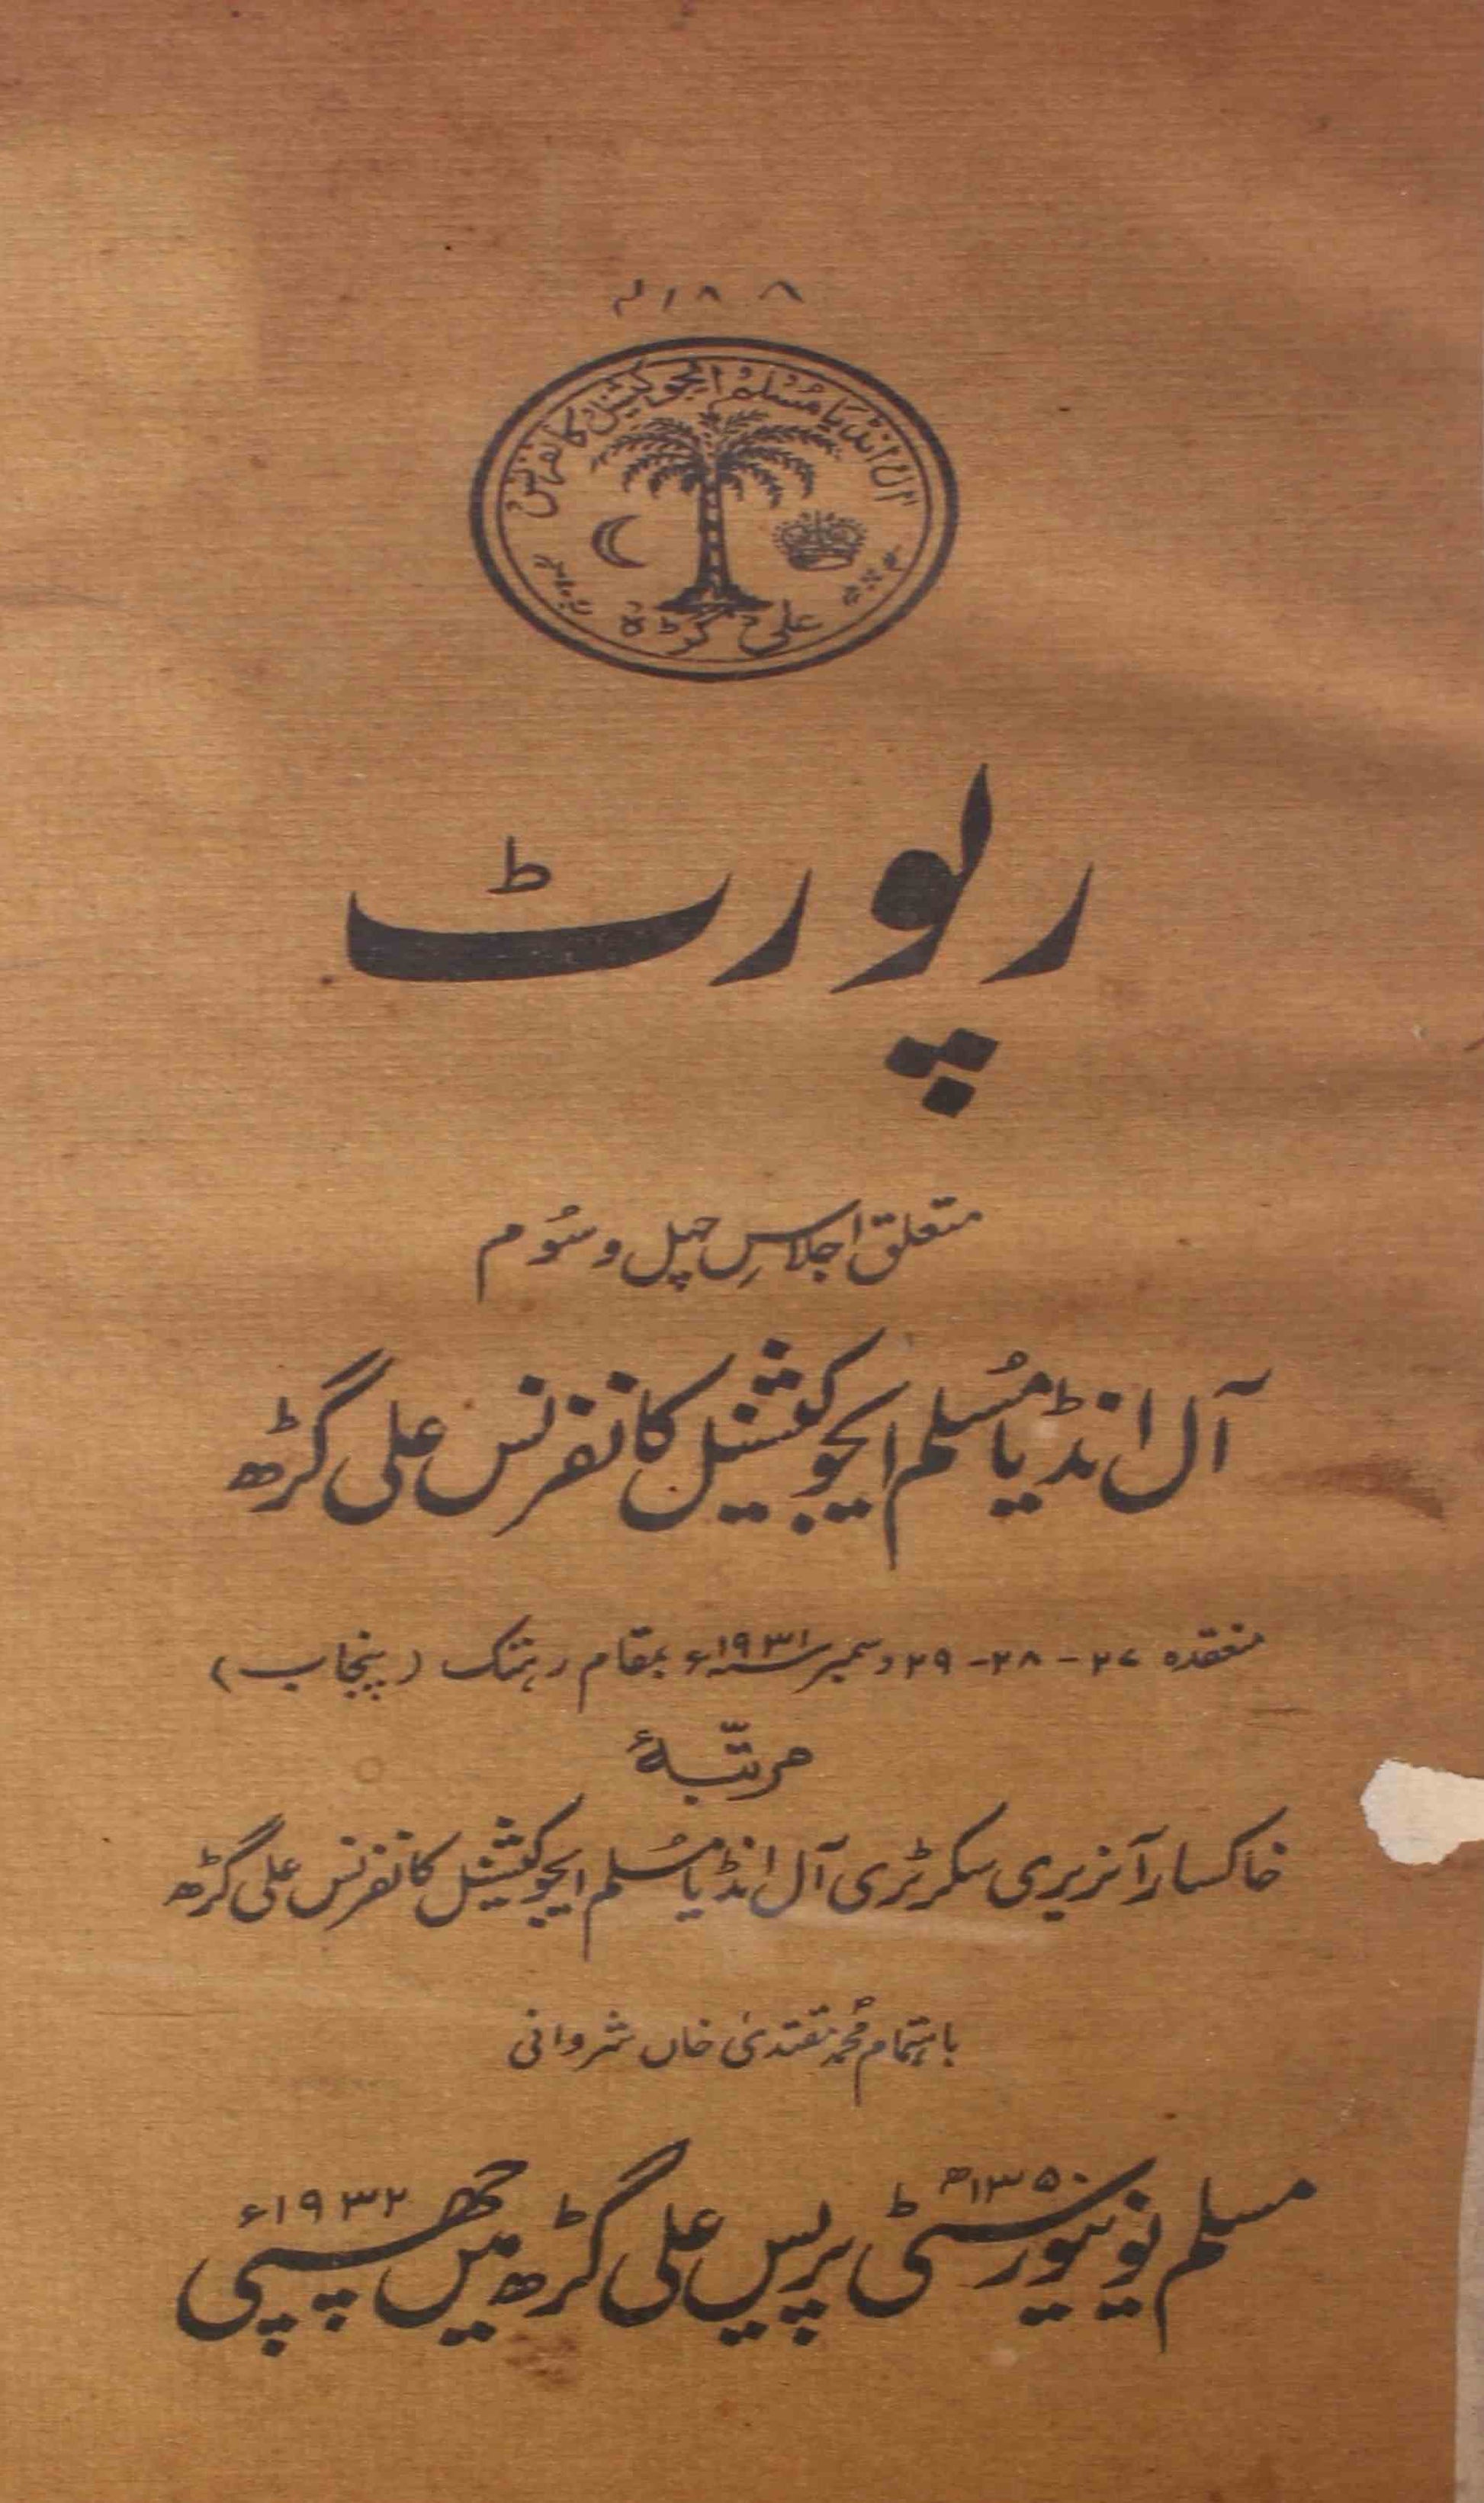 آل انڈیا مسلم ایجوکیشنل کانفرنس
علی گڑھ
رپورٹ
متعلق اجلاسِ چہل و سُوم
آل انڈیا مُسلم ایجوکیشنل کانفرنس علی گڑھ
منعقدہ ۲۷ - ۲۸ - ۲۹ دسمبر ۱۹۳۱ء بمقام رہتک (پنجاب)
مرتّبۂ
خاکسار آنریری سکرٹری آل انڈیا مُسلم ایجوکیشنل کانفرنس علی گڑھ
باہتمام محُمد مقتدیٰ خاں شروانی
مسلم یونیورسٹی پریس علی گڑھ میں چھپی
۱۳۵۰ھ ۱۹۳۲ء